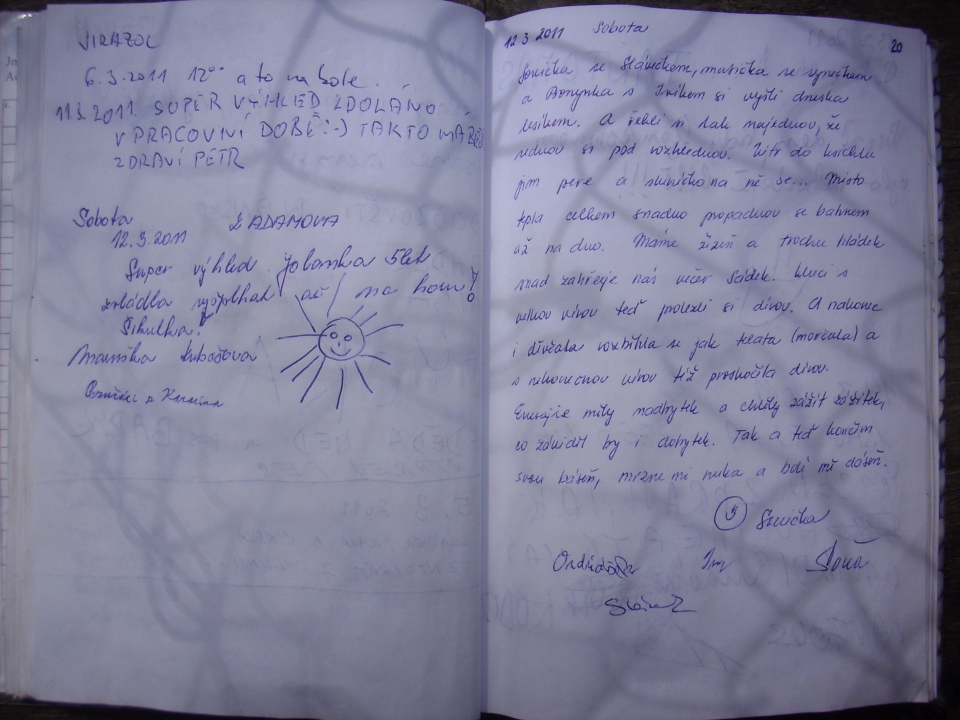 VIRAZOL
6.3.2011 12⁰⁰ a to na kole.
11.3.2011. SUPER VÝHLED ZDOLÁNO
V PRACOVNÍ DOBĚ :-) TAKTO
ZDRAVÍ PETR
Sobota
12.3.2011
Z ADAMOVA
Super výhled. Jolanka 5let
zvládla vyšplhat až na horu!
Šikulka!
Maruška
12 3 2011 Sobota
20
Sonička se Slávečkem, matička se synečkem
a s si vyšli dneska
lesíkem. A řekli si tak najednou, že
sednou si pod rozhlednou. Vítr do ksichtu
jim pere a sluníčko na ně se... Místo
tepla celkem snadno propadnou se bahnem
až na dno. Máme žízeň a trochu hládek
snad zahřeje nás večer Kluci s
velkou vírou teď prolezli si dírou. A nakonec
i děvčata rozběhla se jak telata (morčata) a
s nekonečnou vírou též proskočila dírou.
Energie měly nadbytek a chtěly zážit zážitek,
co záviděl by i dobytek. Tak a teď končím
svou báseň, mrzne mi ruka a bolí mě dáseň.
Soňa